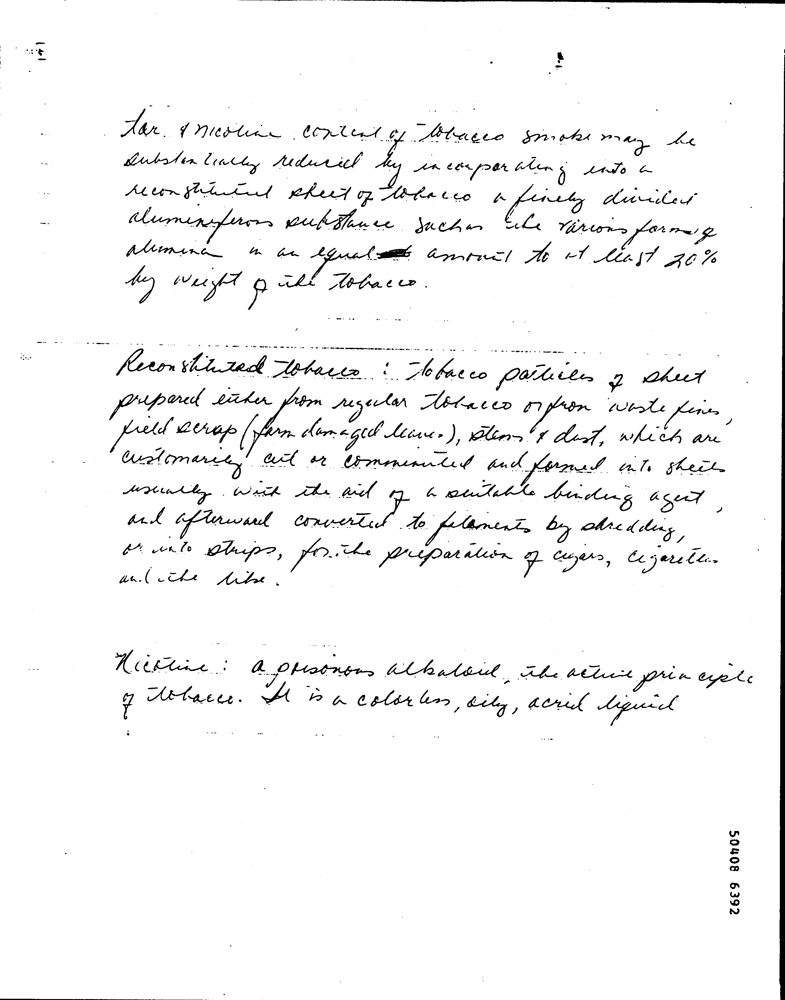 tar & nicotine content of tobacco smoke may be
substantially reduced by incorporating into a
reconstituted sheet of tobacco a finely divided
alumeniferous substance such as the various forms of
alumina in an equal amount to at least 20%
by weight of the tobacco.
Reconstituted tobacco : tobacco particles of sheet
prepared either from regular tobacco or from waste fines,
field scrap (farm damaged leaves), stems & dust, which are
customarily cut or comminuted and formed into sheets
usually with the aid of a suitable binding agent,
and afterward converted to filaments by shredding,
or into strips, for the preparation of cigars, cigarettes
and the like.
Nicotine : a poisonous alkaloid, the active principle
of tobacco. It is a colorless, oily, acrid liquid
50408 6392